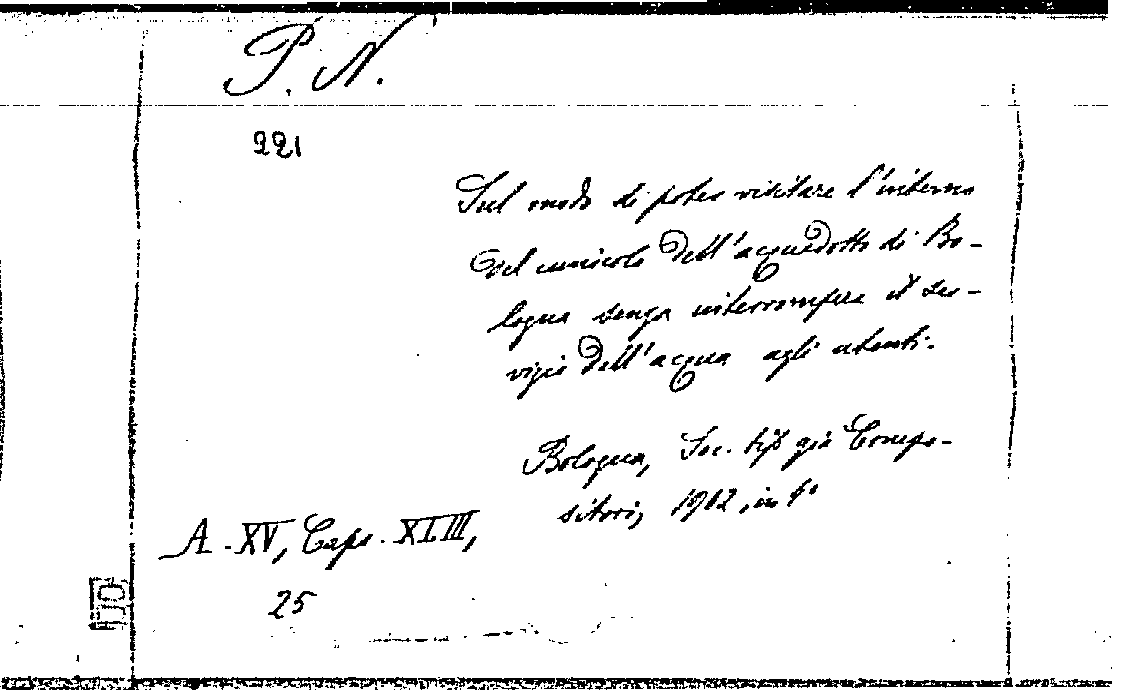 P. N.
221
Sul modo di poter visitare l'interno
del cunicolo dell'acquedotto di Bo-
logna senza interrompere il ser-
vizio dell'acqua agli utenti.
Bologna, Soc. tip. già Compo-
sitori, 1912, in 4°
A. XV, Caps. XLIII,
25